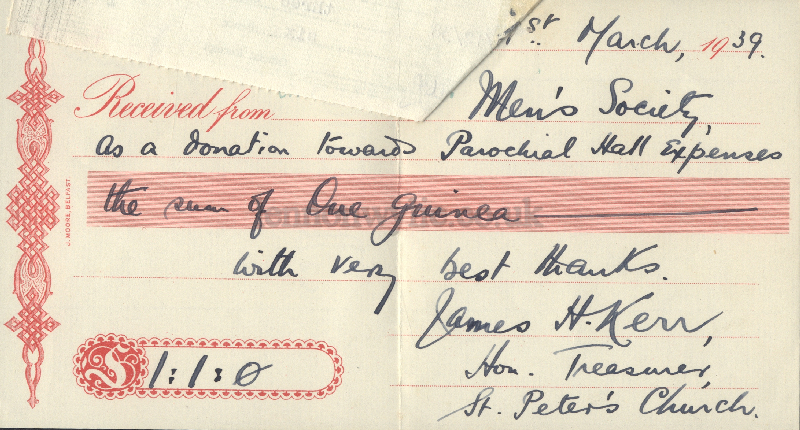 1st. March, 1939.
Received from Men's Society,
as a donation towards Parochial Hall Expenses
the sum of One Guinea
with very best thanks.
James H. Kerr,
Hon. Treasurer,
St. Peter's Church.
£ 1:1:0
J. MOORE, BELFAST